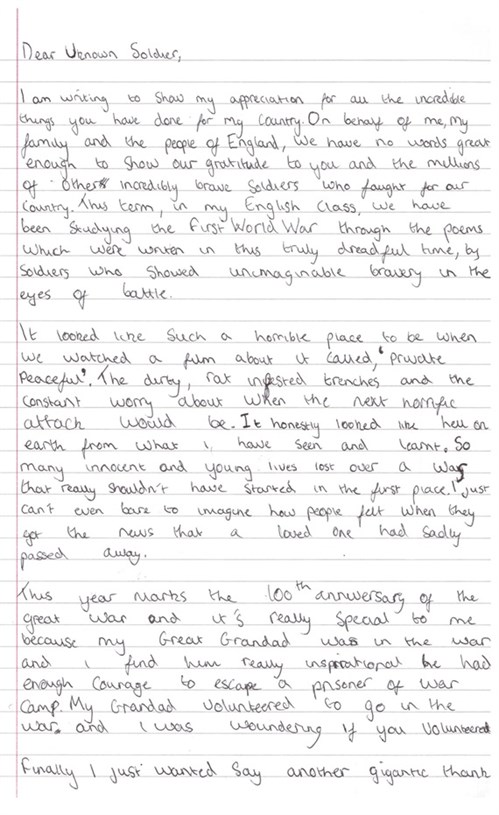 Dear Uknown Soldier,
I am writing to show my appreciation for all the incredible
things you have done for my country. On behalf of me, my
family and the people of England, we have no words great
enough to show our gratitude to you and the millions
of others incredibly brave soldiers who faught for our
country. This term, in my English class, we have
been studying the First World War through the poems
which were writen in this truly dreadful time, by
soldiers who showed unimaginable bravery in the
eyes of battle.
It looked like such a horrible place to be when
we watched a film about it called, 'Private
Peaceful'. The dirty, rat infested trenches and the
constant worry about when the next horrific
attack would be. It honestly looked like hell on
earth from what i have seen and learnt. So
many innocent and young lives lost over a war
that really shouldn't have started in the first place. I just
can't even bare to imagine how people felt when they
got the news that a loved one had sadly
passed away.
This year marks the 100th anniversary of the
great war and it's really special to me
because my Great Grandad was in the war
and i find him really inspirational he had
enough courage to escape a prisoner of war
camp. My Grandad volunteered to go in the
war. and i was woundering if you volunteered
Finally I just wanted say another gigantic thank